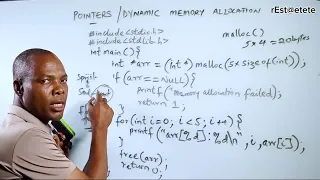 POINTERS/DYNAMIC MEMORY ALLOCATION
#include<stdio.h>
#include<stdlib.h>
malloc()
5x4=20bytes
int main(){
int *arr = (int*)malloc(5xsize of(int));
if (arr==NULL){
printf("Memory allocation failed);
return 1;
}
for(int i=0; i<5; i++){
printf("arr[%d]:%d\n", i, arr[i]);
}
free(arr);
return 0;
rEst@etete